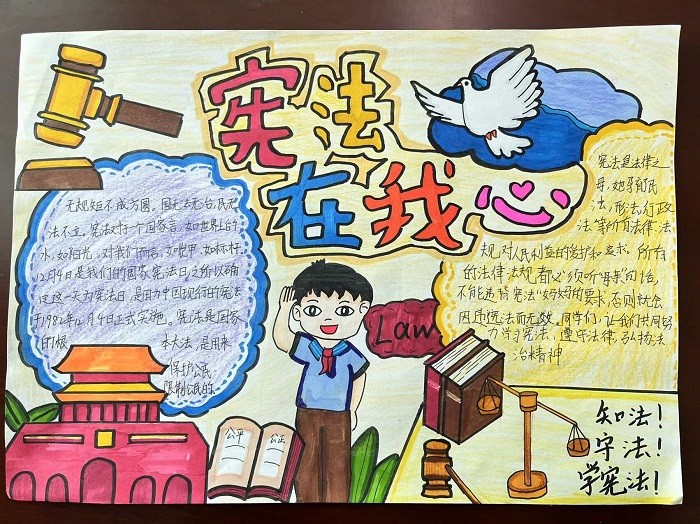 宪法
在我心
无规矩不成方圆。国无法无治,民无
法不立。宪法对于一个国家言,如世界上的
水,如阳光,对我们而言,如盔甲,如标杆。
12月4日是我们的国家宪法日之所以确
定这一天为宪法日,是因为中国现行的宪法
于1982年12月4日正式实施。宪法是国家
的根 本大法 是用来
保护公民
限制公民的
宪法是法律之
母,她孕育民
法,刑法,行政
法等所有法律、法
规,对人民利益的 护和 求。所有
的法律法规都必须听"母亲"的话,
不能违背宪法"妈妈"的要求,否则就会
因为违法而无效。同学们,让我们共同努
力学习宪法,遵守法律,弘扬法
治精神
Law
公平 公正
知法!
守法!
学宪法!